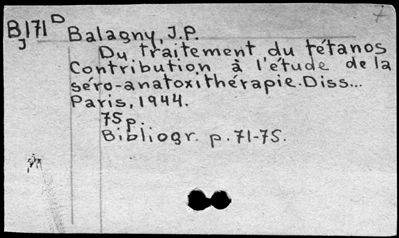 B171 D Balagny, J.P.
J
Du traitement du tétanos
Contribution à l'étude de la
séro-anatoxithérapie. Diss...
Paris, 1944.
75 p.
Bibliogr. p. 71-75.